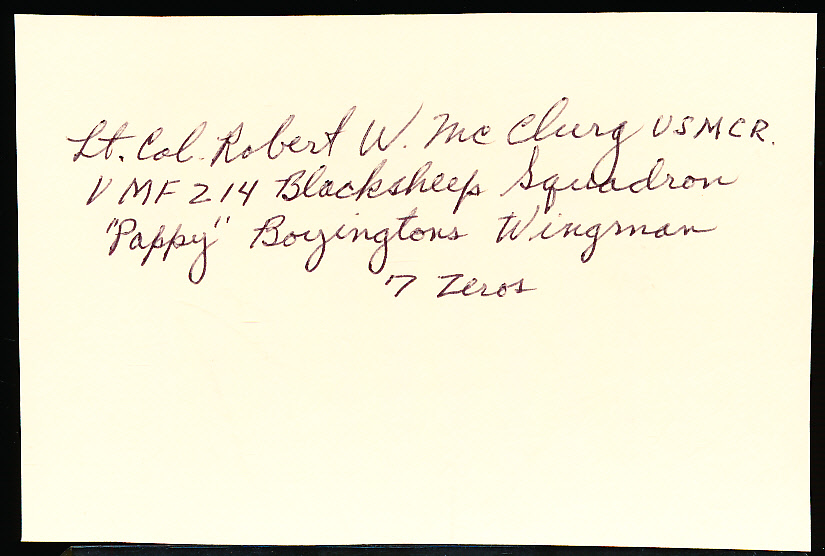 Lt. Col. Robert W. McClurg USMCR.
VMF 214 Blacksheep Squadron
"Pappy" Boyingtons Wingman
7 Zeros